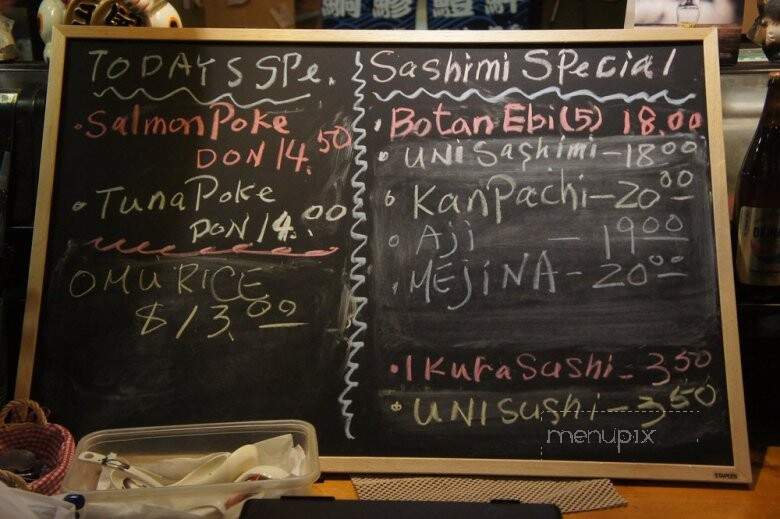 TODAYS SPe.
• Salmon Poke
DON 14.50
• Tuna Poke
DON 14.00
OMU RICE
$13.00
Sashimi SPecial
• Botan Ebi (5) 18.00
• UNI Sashimi - 18.00
• Kanpachi - 20.00
• AJi - 19.00
• MEJiNA - 20.00
• IKura Sushi - 3.50
• UNI Sushi - 3.50
menupix
STAPLES